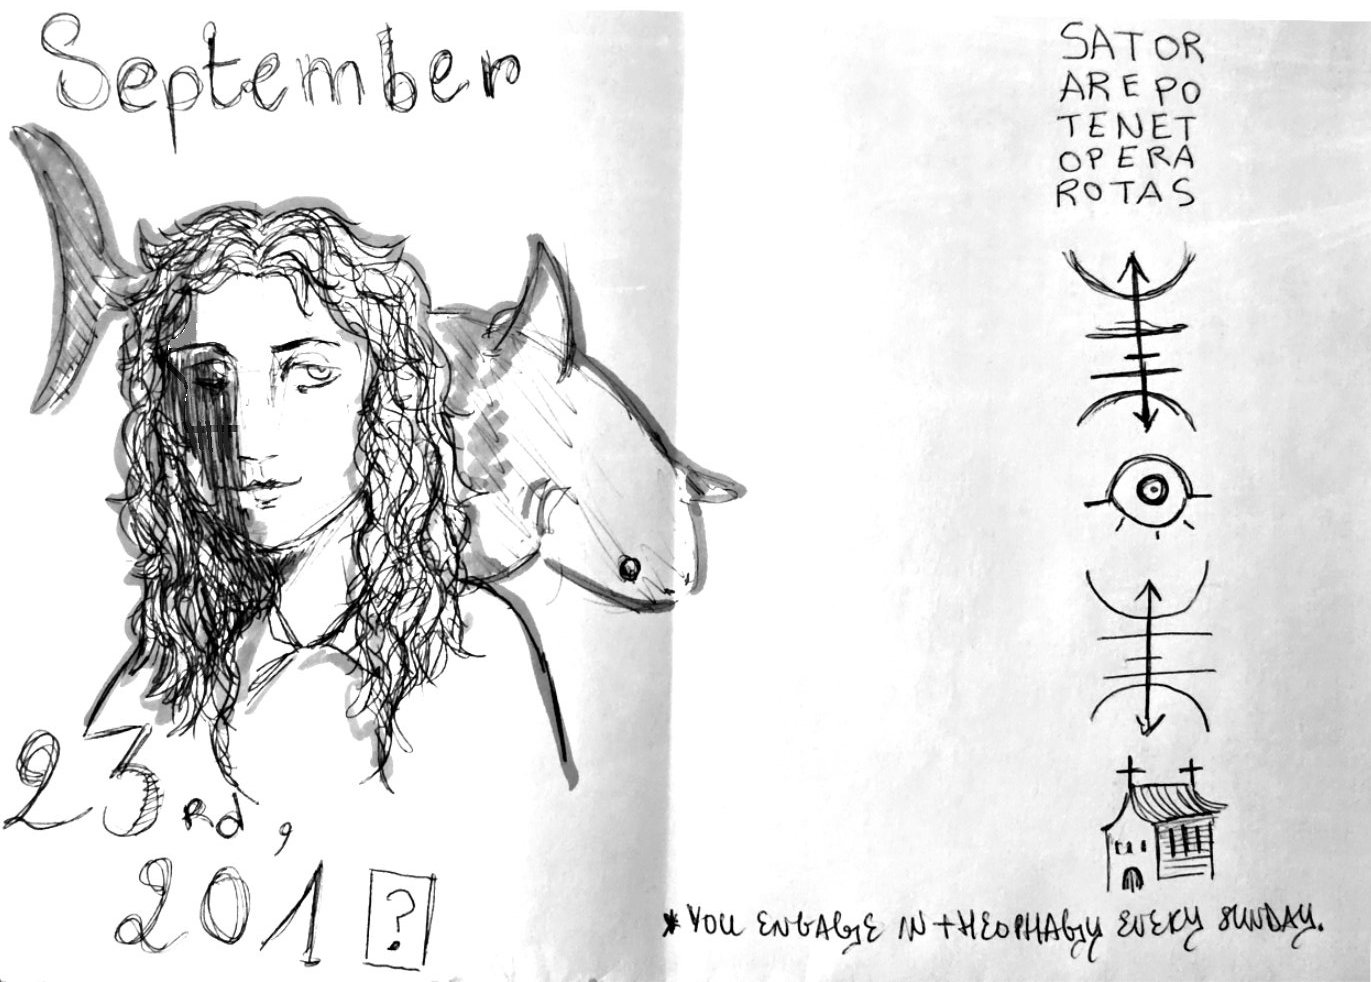 September
23rd,
201?
SATOR
AREPO
TENET
OPERA
ROTAS
*YOU ENGAGE IN THEOPHAGY EVERY SUNDAY.